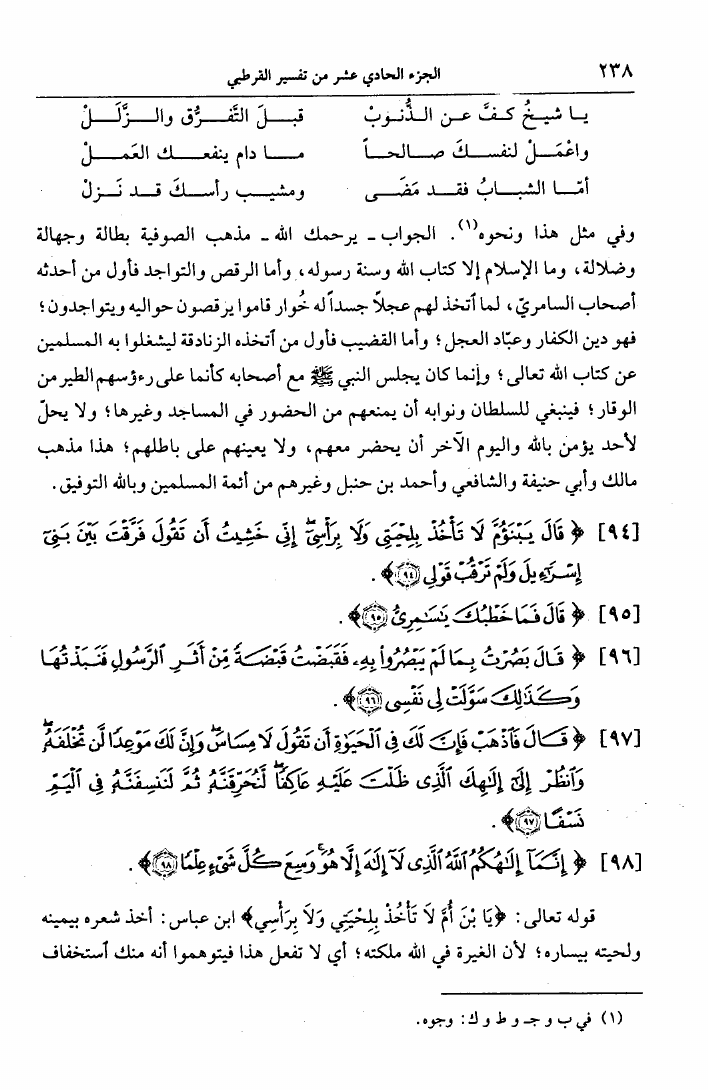 ٢٣٨ الجزء الحادي عشر من تفسير القرطبي
يـا شيـخُ كـفَّ عـن الـذُّنـوبْ قبــلَ التَّفــرُّق والــزَّلَــلْ
واعْمَــلْ لنفســكَ صــالحــاً مــا دام ينفعــك العَمــلْ
أمّــا الشبــابُ فقــد مَضَــى ومشيــب رأســكَ قــد نَــزلْ
وفي مثل هذا ونحوه(١). الجواب ـ يرحمك الله ـ مذهب الصوفية بطالة وجهالة
وضلالة، وما الإسلام إلا كتاب الله وسنة رسوله، وأما الرقص والتواجد فأول من أحدثه
أصحاب السامريّ، لما ٱتخذ لهم عجلاً جسداً له خُوار قاموا يرقصون حواليه ويتواجدون؛
فهو دين الكفار وعبّاد العجل؛ وأما القضيب فأول من ٱتخذه الزنادقة ليشغلوا به المسلمين
عن كتاب الله تعالى؛ وإنما كان يجلس النبي ﷺ مع أصحابه كأنما على رءؤسهم الطير من
الوقار؛ فينبغي للسلطان ونوابه أن يمنعهم من الحضور في المساجد وغيرها؛ ولا يحلّ
لأحد يؤمن بالله واليوم الآخر أن يحضر معهم، ولا يعينهم على باطلهم؛ هذا مذهب
مالك وأبي حنيفة والشافعي وأحمد بن حنبل وغيرهم من أئمة المسلمين وبالله التوفيق.
[٩٤] ﴿ قَالَ يَبْنَؤُمَّ لَا تَأْخُذْ بِلِحْيَتِى وَلَا بِرَأْسِىٓۖ إِنِّى خَشِيتُ أَن تَقُولَ فَرَّقْتَ بَيْنَ بَنِىٓ
إِسْرَٰٓءِيلَ وَلَمْ تَرْقُبْ قَوْلِى ٩٤ ﴾.
[٩٥] ﴿ قَالَ فَمَا خَطْبُكَ يَٰسَٰمِرِىُّ ٩٥ ﴾.
[٩٦] ﴿ قَالَ بَصُرْتُ بِمَا لَمْ يَبْصُرُوا۟ بِهِۦ فَقَبَضْتُ قَبْضَةً مِّنْ أَثَرِ ٱلرَّسُولِ فَنَبَذْتُهَا
وَكَذَٰلِكَ سَوَّلَتْ لِى نَفْسِى ٩٦ ﴾.
[٩٧] ﴿ قَالَ فَٱذْهَبْ فَإِنَّ لَكَ فِى ٱلْحَيَوٰةِ أَن تَقُولَ لَا مِسَاسَۖ وَإِنَّ لَكَ مَوْعِدًا لَّن تُخْلَفَهُۥۖ
وَٱنظُرْ إِلَىٰٓ إِلَٰهِكَ ٱلَّذِى ظَلْتَ عَلَيْهِ عَاكِفًاۖ لَّنُحَرِّقَنَّهُۥ ثُمَّ لَنَنسِفَنَّهُۥ فِى ٱلْيَمِّ
نَسْفًا ٩٧ ﴾.
[٩٨] ﴿ إِنَّمَآ إِلَٰهُكُمُ ٱللَّهُ ٱلَّذِى لَآ إِلَٰهَ إِلَّا هُوَۚ وَسِعَ كُلَّ شَىْءٍ عِلْمًا ٩٨ ﴾.
قوله تعالى: ﴿يَا بْنَ أُمَّ لَا تَأْخُذْ بِلِحْيَتِي وَلَا بِرَأْسِي﴾ ابن عباس: أخذ شعره بيمينه
ولحيته بيساره؛ لأن الغيرة في الله ملكته؛ أي لا تفعل هذا فيتوهموا أنه منك ٱستخفاف
(١) في ب و جـ و ط و ك: وجوه.